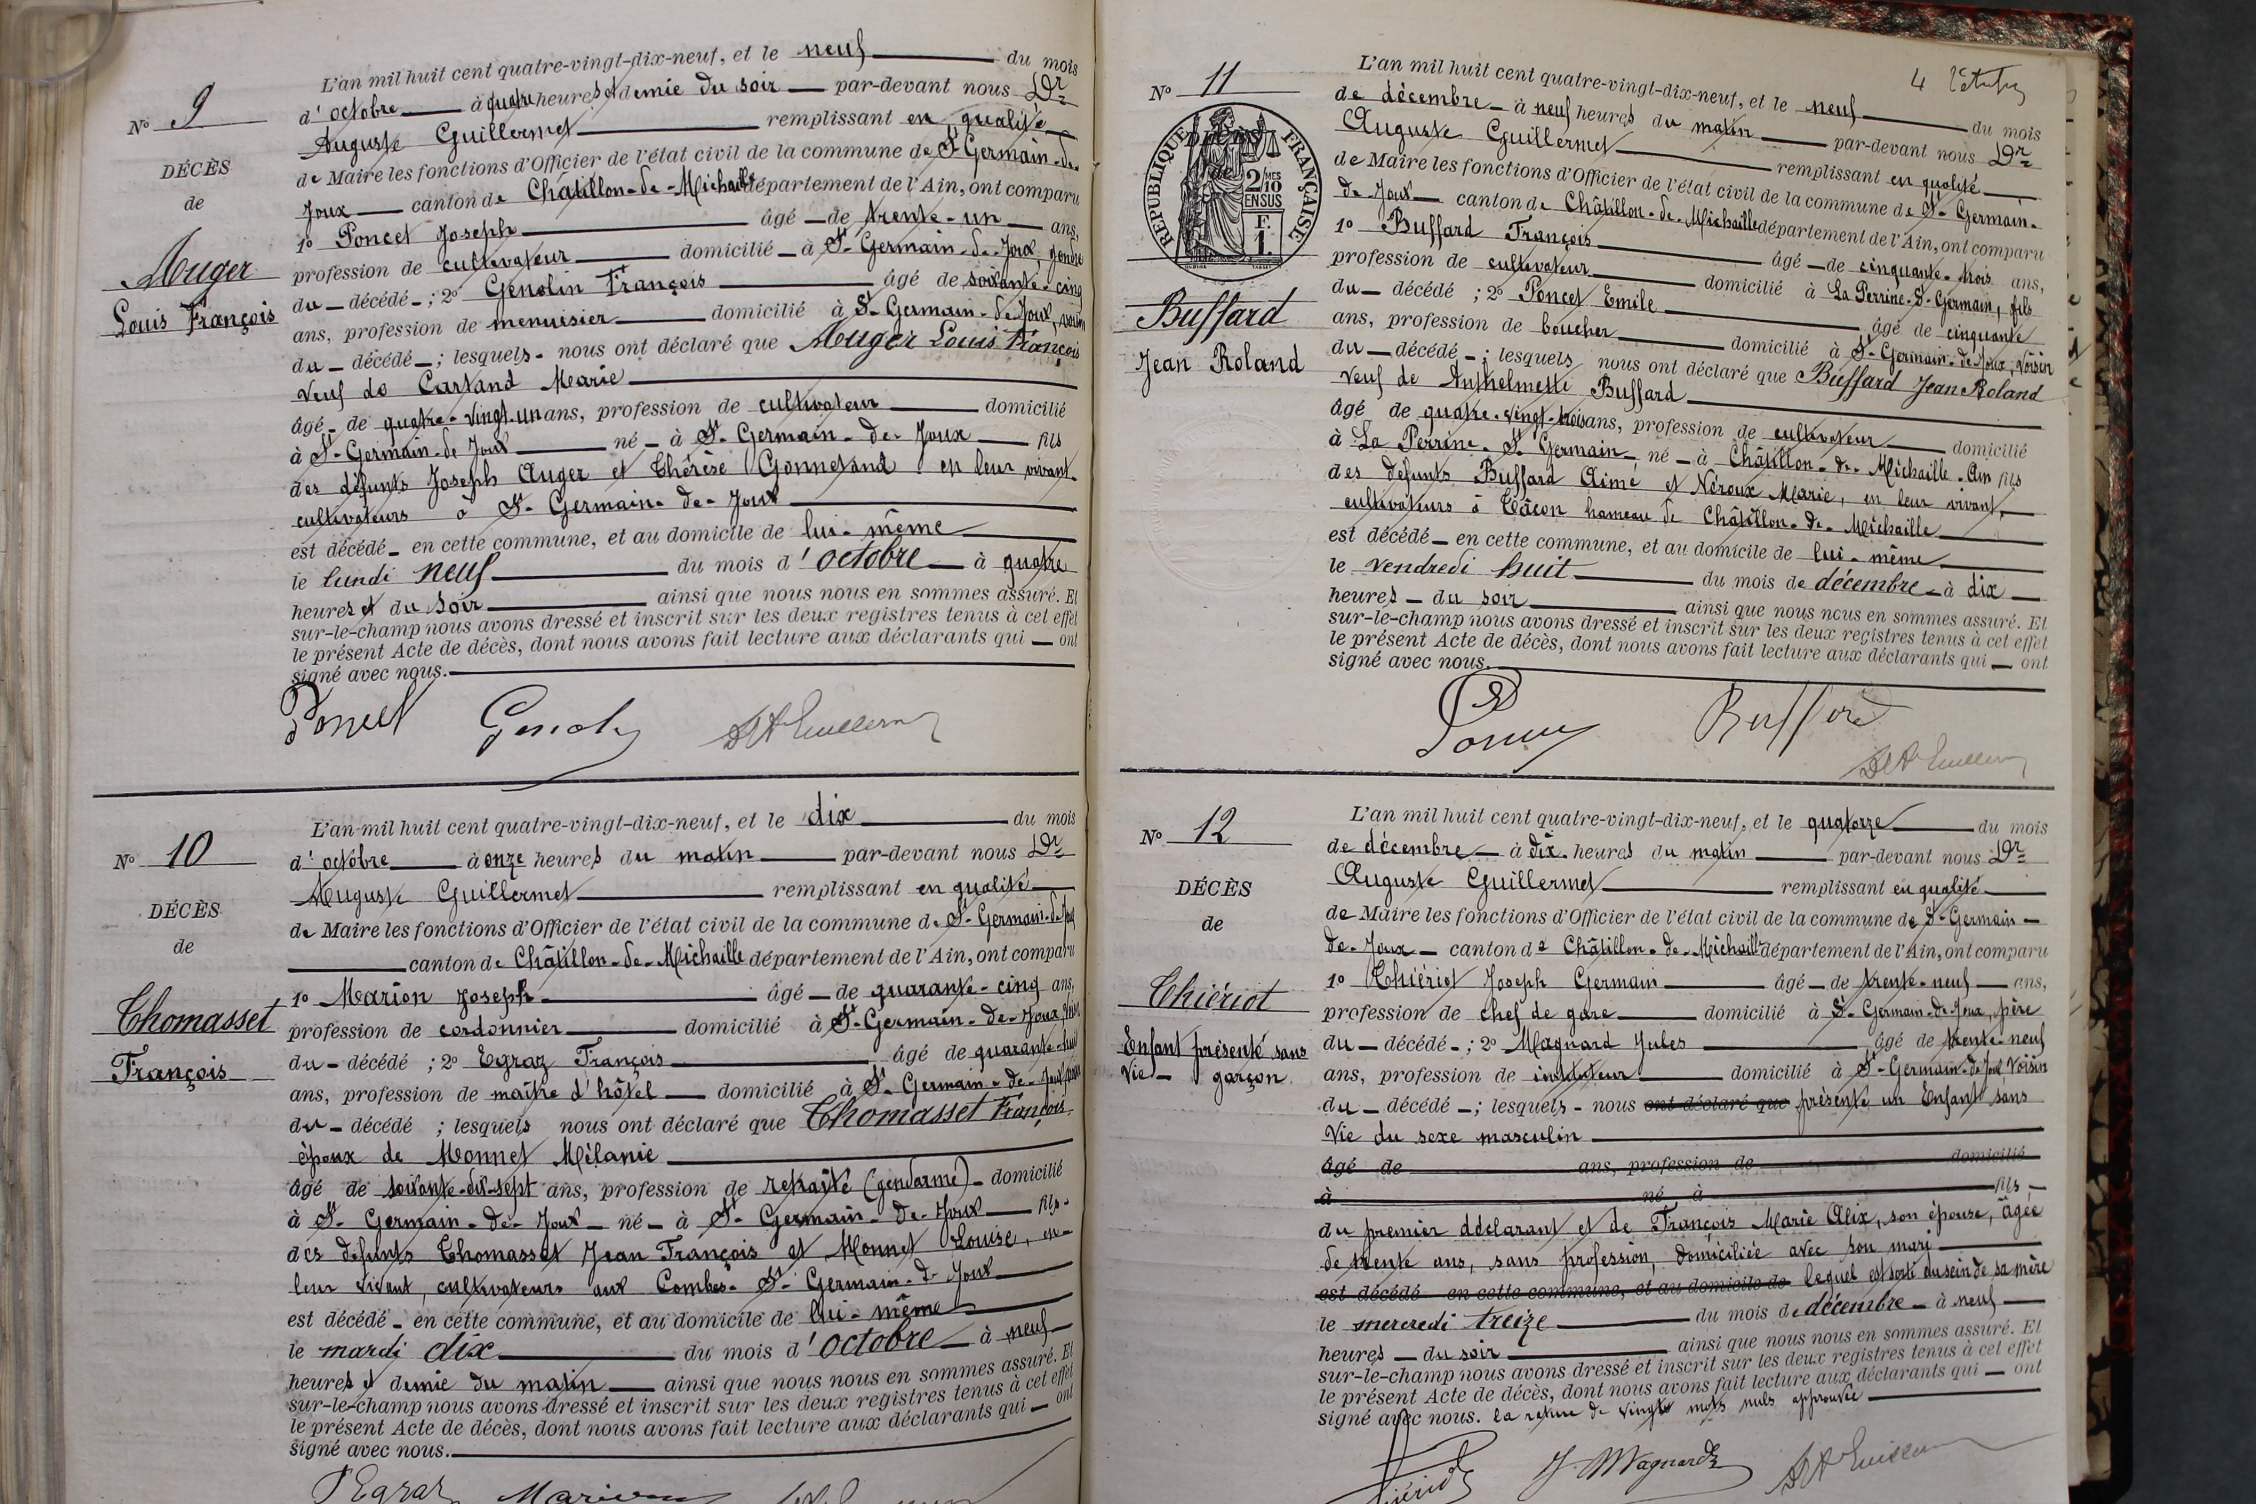 N° 9
DÉCÈS
de
Auger
Louis François
L'an mil huit cent quatre-vingt-dix-neuf, et le neuf du mois
d'octobre à quatre heures et demie du soir par-devant nous Dr
Auguste Guillermet remplissant en qualité
de Maire les fonctions d'Officier de l'état civil de la commune de St Germain-de-
Joux canton de Châtillon-de-Michaille département de l'Ain, ont comparu
1° Poncet Joseph âgé de trente-un ans,
profession de cultivateur domicilié à St-Germain-de-Joux, gendre
du décédé ; 2° Genolin François âgé de soixante-cinq
ans, profession de menuisier domicilié à St-Germain-de-Joux, voisin
du décédé ; lesquels nous ont déclaré que Auger Louis François
Veuf de Cartand Marie
âgé de quatre-vingt-un ans, profession de cultivateur domicilié
à St-Germain-de Joux né à St-Germain-de-Joux fils
des défunts Joseph Auger et Thérèse Gonnetand en leur vivant
cultivateurs à St-Germain-de-Joux
est décédé en cette commune, et au domicile de lui-même
le lundi neuf du mois d'octobre à quatre
heures et du soir ainsi que nous nous en sommes assuré. Et
sur-le-champ nous avons dressé et inscrit sur les deux registres tenus à cet effet
le présent Acte de décès, dont nous avons fait lecture aux déclarants qui ont
signé avec nous.
Poncet Genolin Dr A Guillermet
N° 10
DÉCÈS
de
Thomasset
François
L'an mil huit cent quatre-vingt-dix-neuf, et le dix du mois
d'octobre à onze heures du matin par-devant nous Dr
Auguste Guillermet remplissant en qualité
de Maire les fonctions d'Officier de l'état civil de la commune de St-Germain-de-Joux
canton de Châtillon-de-Michaille département de l'Ain, ont comparu
1° Marion Joseph âgé de quarante-cinq ans,
profession de cordonnier domicilié à St-Germain-de-Joux
du décédé ; 2° Egraz François âgé de quarante-huit
ans, profession de maître d'hôtel domicilié à St-Germain-de-Joux
du décédé ; lesquels nous ont déclaré que Thomasset François
époux de Monnet Mélanie
âgé de soixante-dix-sept ans, profession de retraité (gendarme) domicilié
à St-Germain-de-Joux né à St-Germain-de-Joux fils
des défunts Thomasset Jean François et Monnet Louise, en
leur vivant, cultivateurs aux Combes-St-Germain-de Joux
est décédé en cette commune, et au domicile de lui-même
le mardi dix du mois d'octobre à neuf
heures et demie du matin ainsi que nous nous en sommes assuré. Et
sur-le-champ nous avons dressé et inscrit sur les deux registres tenus à cet effet
le présent Acte de décès, dont nous avons fait lecture aux déclarants qui ont
signé avec nous.
F Egraz Marion
4
N° 11
RÉPUBLIQUE FRANÇAISE
DÉCÈS
de
2/10 MES
EN SUS
F.
1.
Buffard
Jean Roland
L'an mil huit cent quatre-vingt-dix-neuf, et le neuf du mois
de décembre à neuf heures du matin par-devant nous Dr
Auguste Guillermet remplissant en qualité
de Maire les fonctions d'Officier de l'état civil de la commune de St-Germain-
de-Joux canton de Châtillon-de-Michaille département de l'Ain, ont comparu
1° Buffard François âgé de cinquante-trois ans,
profession de cultivateur domicilié à La Perrine-St-Germain, fils
du décédé ; 2° Poncet Emile âgé de cinquante
ans, profession de boucher domicilié à St-Germain-de-Joux, voisin
du décédé ; lesquels nous ont déclaré que Buffard Jean Roland
Veuf de Anthelmette Buffard
âgé de quatre-vingt-trois ans, profession de cultivateur domicilié
à La Perrine-St Germain né à Châtillon-de-Michaille-Ain fils
des défunts Buffard Aimé et Néroux Marie, en leur vivant,
cultivateurs à Tâcon hameau de Châtillon-de-Michaille
est décédé en cette commune, et au domicile de lui-même
le vendredi huit du mois de décembre à dix
heures du soir ainsi que nous nous en sommes assuré. Et
sur-le-champ nous avons dressé et inscrit sur les deux registres tenus à cet effet
le présent Acte de décès, dont nous avons fait lecture aux déclarants qui ont
signé avec nous.
Poncet Buffard
Dr A Guillermet
N° 12
DÉCÈS
de
Thiériot
Enfant présenté sans
Vie garçon
L'an mil huit cent quatre-vingt-dix-neuf, et le quatorze du mois
de décembre à dix heures du matin par-devant nous Dr
Auguste Guillermet remplissant en qualité
de Maire les fonctions d'Officier de l'état civil de la commune de St-Germain
de-Joux canton de Châtillon-de-Michaille département de l'Ain, ont comparu
1° Thiériot Joseph Germain âgé de trente-neuf ans,
profession de chef de gare domicilié à St-Germain-de-Joux, père
du décédé ; 2° Magnard Jules âgé de trente-neuf
ans, profession de instituteur domicilié à St-Germain-de-Joux voisin
du décédé ; lesquels nous ont déclaré que présenté un Enfant sans
Vie du sexe masculin
âgé de ans, profession de domicilié
à né à fils
du premier déclarant et de François Marie Alix, son épouse, âgée
de trente ans, sans profession, domiciliée avec son mari
est décédé en cette commune, et au domicile de lequel est sorti du sein de sa mère
le mercredi treize du mois de décembre à neuf
heures du soir ainsi que nous nous en sommes assuré. Et
sur-le-champ nous avons dressé et inscrit sur les deux registres tenus à cet effet
le présent Acte de décès, dont nous avons fait lecture aux déclarants qui ont
signé avec nous. la rature de vingt mots nuls approuvée
Thiériot J. Magnard Dr A Guillermet